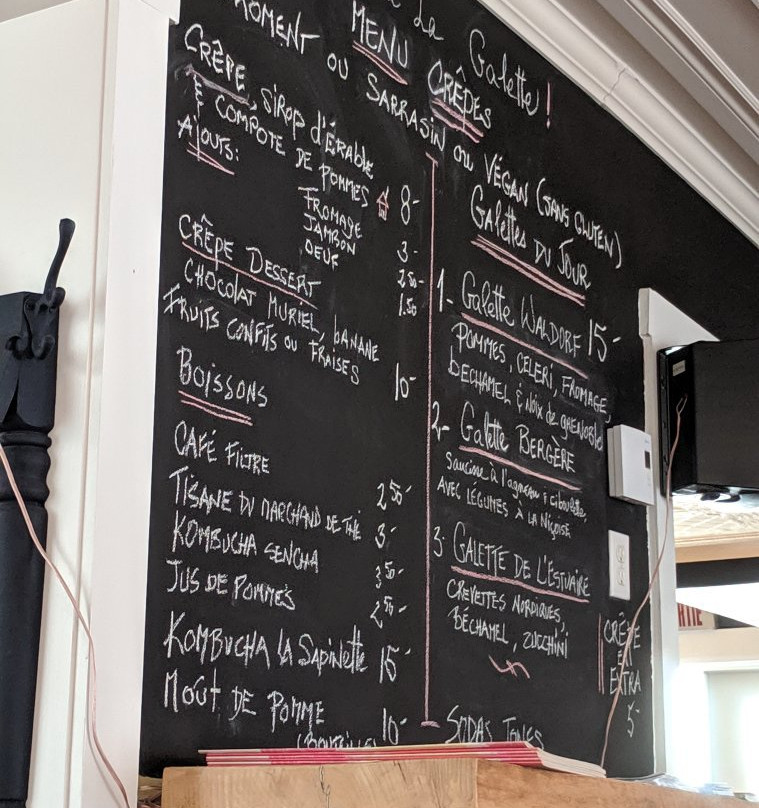 La Galette!
MENU CRÊPES
ROMENT OU SARRASIN OU VÉGAN (SANS GLUTEN)
CRÊPE, SIROP d'ÉRABLE
& COMPOTE DE POMMES 8-
AJOUTS:
FROMAGE 3-
JAMBON 2.50-
OEUF 1.50
CRÊPE DESSERT
CHOCOLAT MURIEL, BANANE
FRUITS CONFITS OU FRAISES 10-
BOISSONS
CAFÉ FILTRE 2 50-
TISANE DU MARCHAND DE THÉ 3-
KOMBUCHA SENCHA 3 50-
JUS DE POMMES 2 50-
KOMBUCHA LA SAPINETTE 15-
MOÛT DE POMME 10-
(BOUTEILLE
Galettes DU JOUR
1- Galette WALDORF 15-
POMMES, CELERI, FROMAGE,
BECHAMEL & NOIX de GRENOBLE
2- Galette BERGÈRE
Saucisse à l'agneau & ciboulette,
AVEC LÉGUMES À LA NIÇOISE
3- GALETTE DE L'ESTUAIRE
CREVETTES NORDIQUES,
BÉCHAMEL, ZUCCHINI
CRÊPE
EXTRA
5-
SODAS TONES